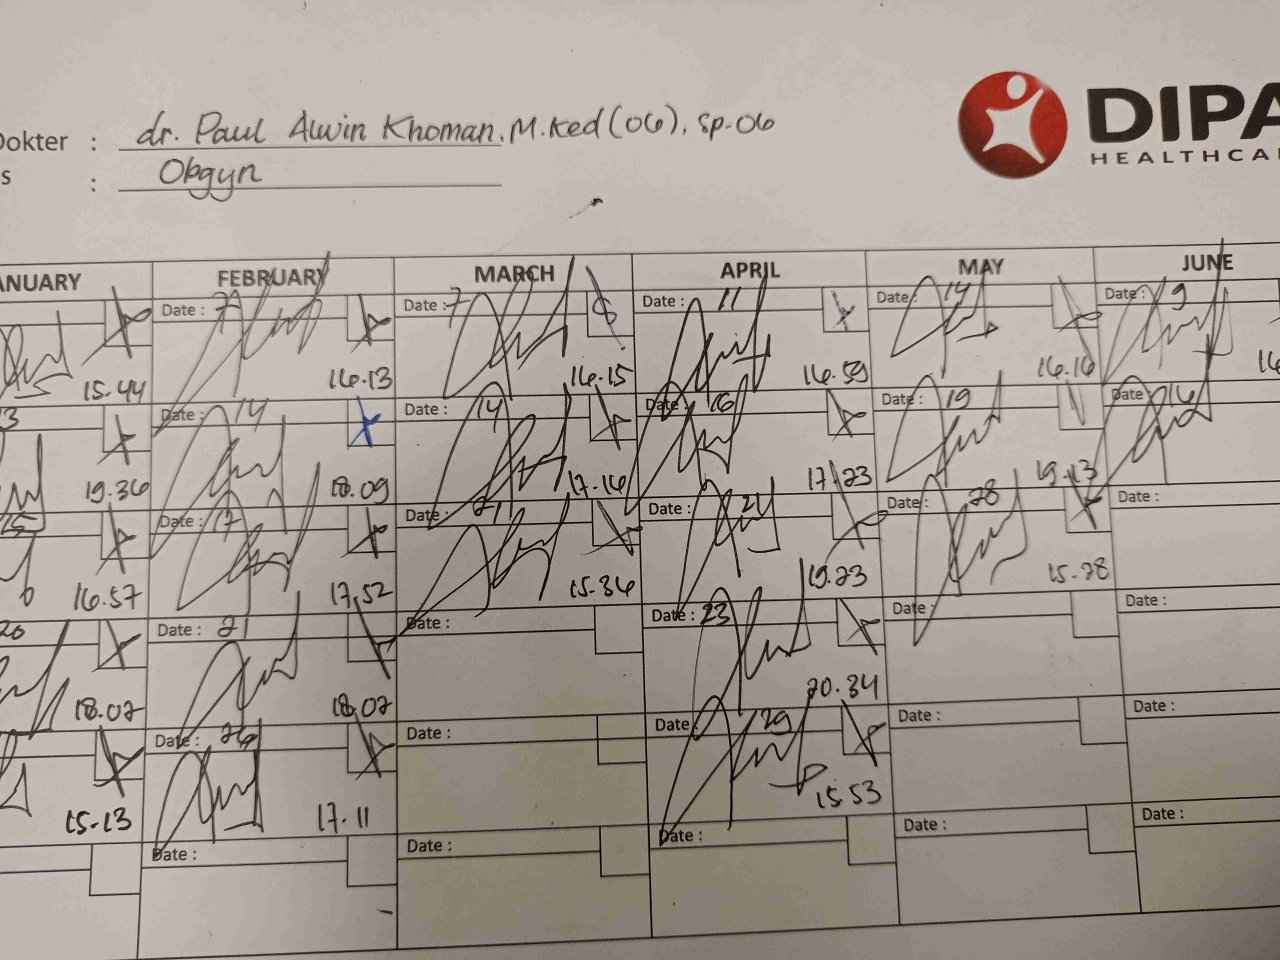 Dokter : dr. Paul Alwin Khoman, M.Ked(OG), Sp.OG
s : Obgyn
DIPA
HEALTHCA
ANUARY FEBRUARY MARCH APRIL MAY JUNE
Date : 7 Date : 7 Date : 11 Date : 14 Date : 9
15.44 16.13 16.15 16.59 16.16 16
3 Date : 14 Date : 14 Date : 16 Date : 19 Date : 16
19.36 18.09 17.16 17.23 19.13
15 Date : 17 Date : 21 Date : 21 Date : 28 Date :
16.57 17.52 15.36 19.23 15.28
20 Date : 21 Date : Date : 23 Date : Date :
18.02 18.02 20.34
Date : 26 Date : Date : 29 Date : Date :
15.13 17.11 15 53
Date : Date : Date : Date : Date :